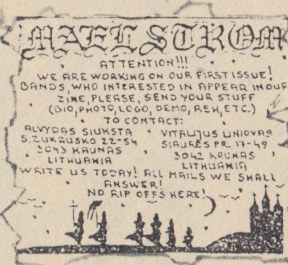 MAELSTROM
ATTENTION!!!
WE ARE WORKING ON OUR FIRST ISSUE!
BANDS, WHO INTERESTED IN APPEAR IN OUR
ZINE, PLEASE, SEND YOUR STUFF
(BIO, PHOTO, LOGO, DEMO, REH, ETC.)
TO CONTACT:
ALVYDAS SIUKSTA
S.ZUKAUSKO 22-54
3043 KAUNAS
LITHUANIA
VITALIJUS UNIOVAS
SIAURĖS PR. 17-49
3042 KAUNAS
LITHUANIA
WRITE US TODAY! ALL MAILS WE SHALL
ANSWER!
NO RIP OFFS HERE!